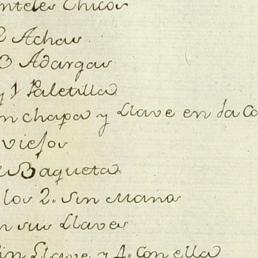 nteles Chicos
2 Achas
3 Adargas
y 1 Paletilla
n chapa y Llave en la Co
viejos
Baqueta
los 2. sin mano
n sus Llaves
in Llave y 4. Con ella